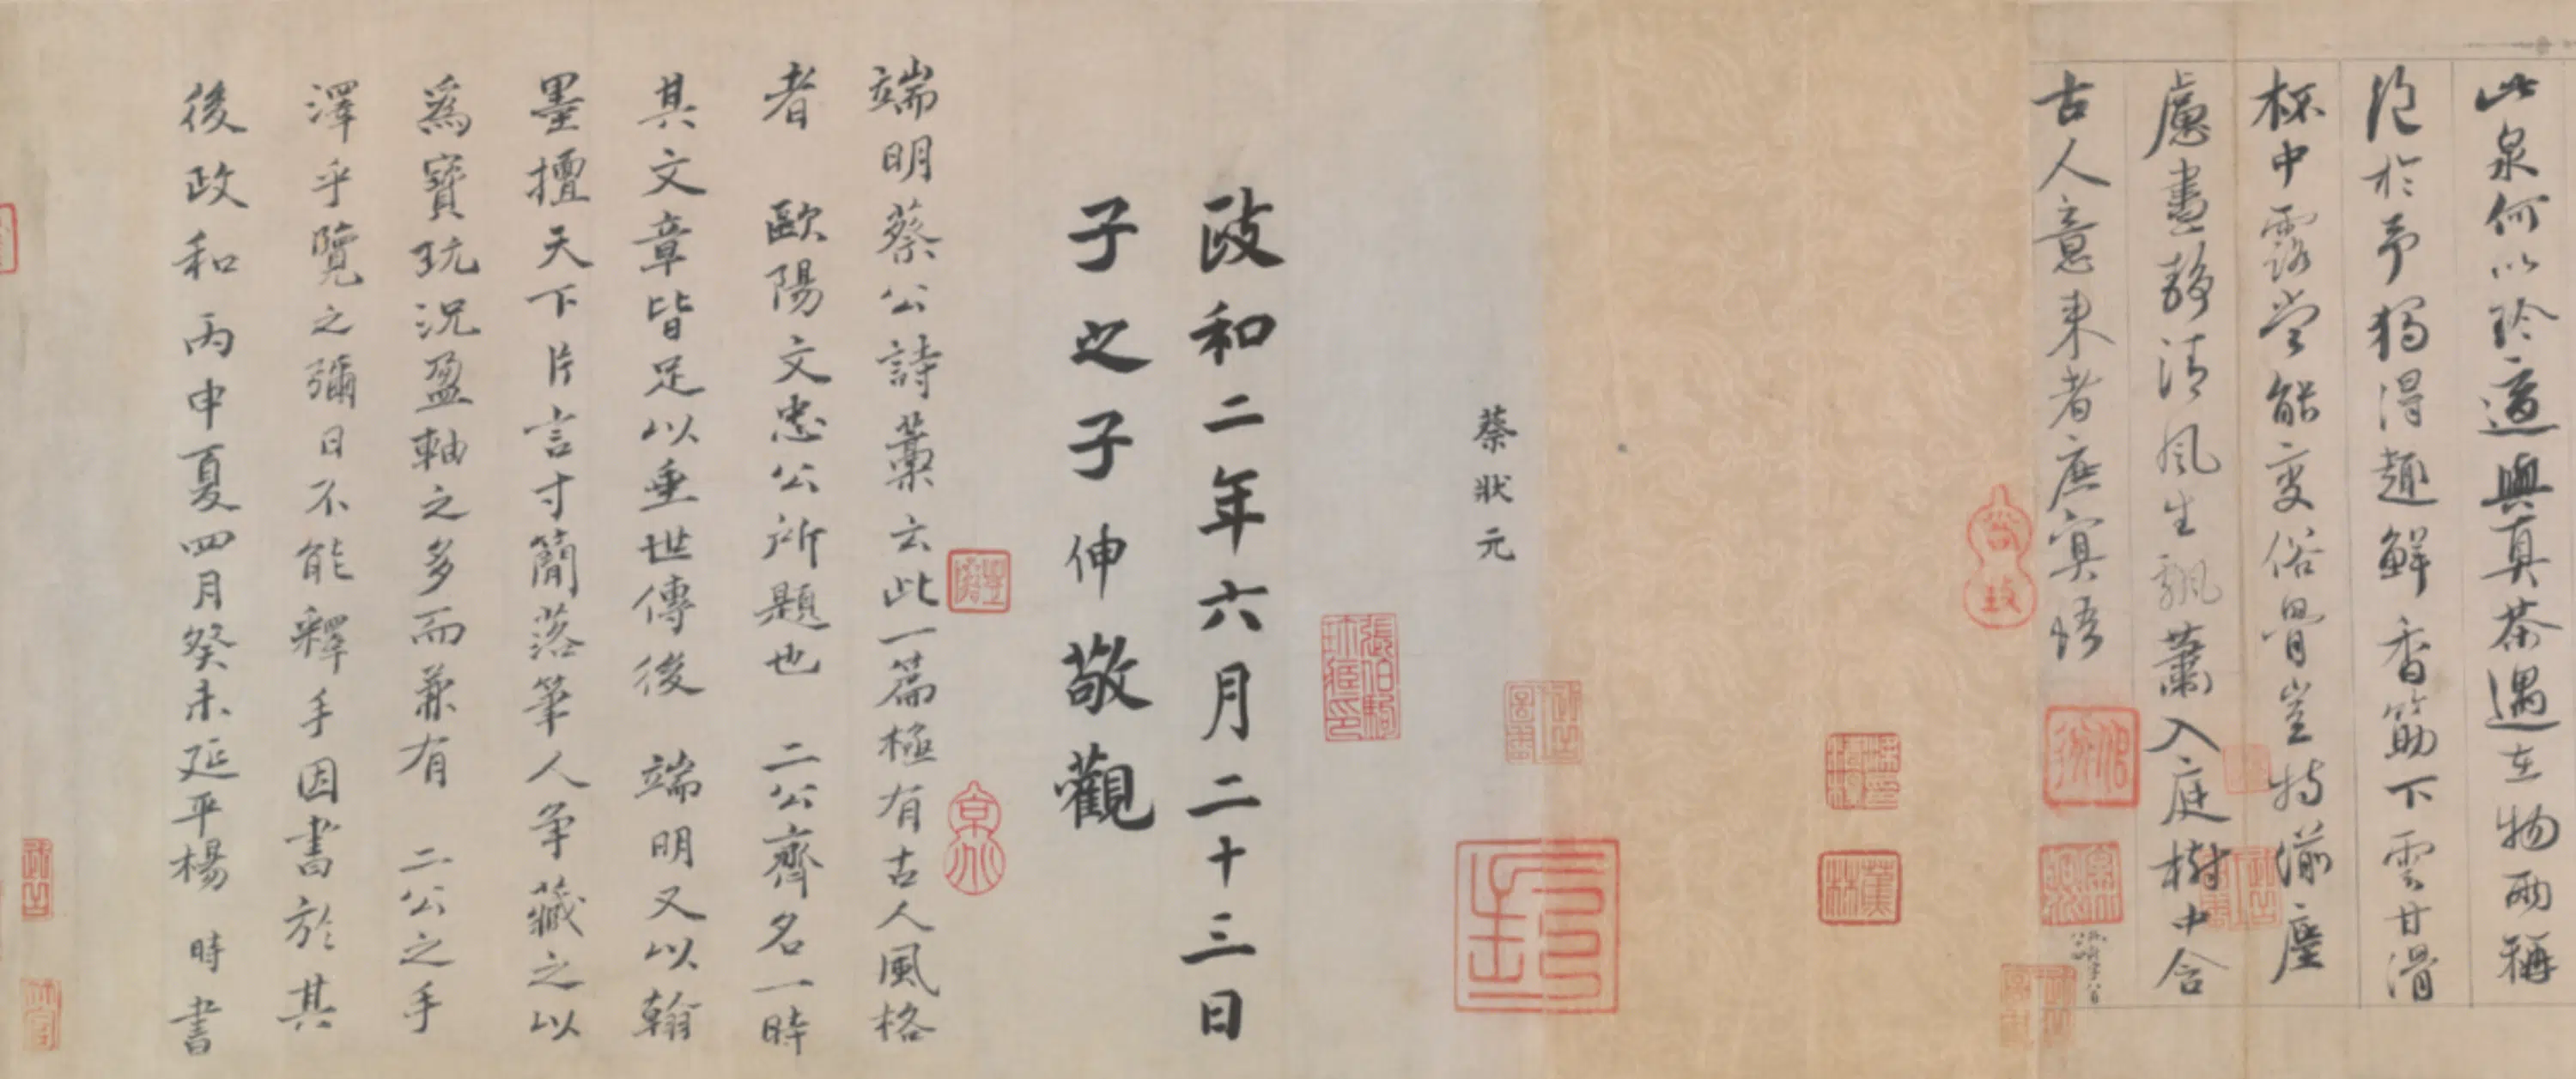 此泉何以珍適與真茶遇在物兩稱
絕於予獨得趣鮮香筯下雲甘滑
杯中露當能變俗骨豈特湔塵
慮晝靜清風生飄蕭入庭樹中含
古人意來者庶冥悟
蔡狀元
張伯駒珍藏印
政和二年六月二十三日
子之子伸敬觀
端明蔡公詩藁云此一篇極有古人風格
者 歐陽文忠公所題也 二公齊名一時
其文章皆足以垂世傳後 端明又以翰
墨擅天下片言寸簡落筆人争藏之以
為寶玩況盈軸之多而兼有 二公之手
澤乎覽之彌日不能釋手因書於其
後政和丙申夏四月癸未延平楊 時書